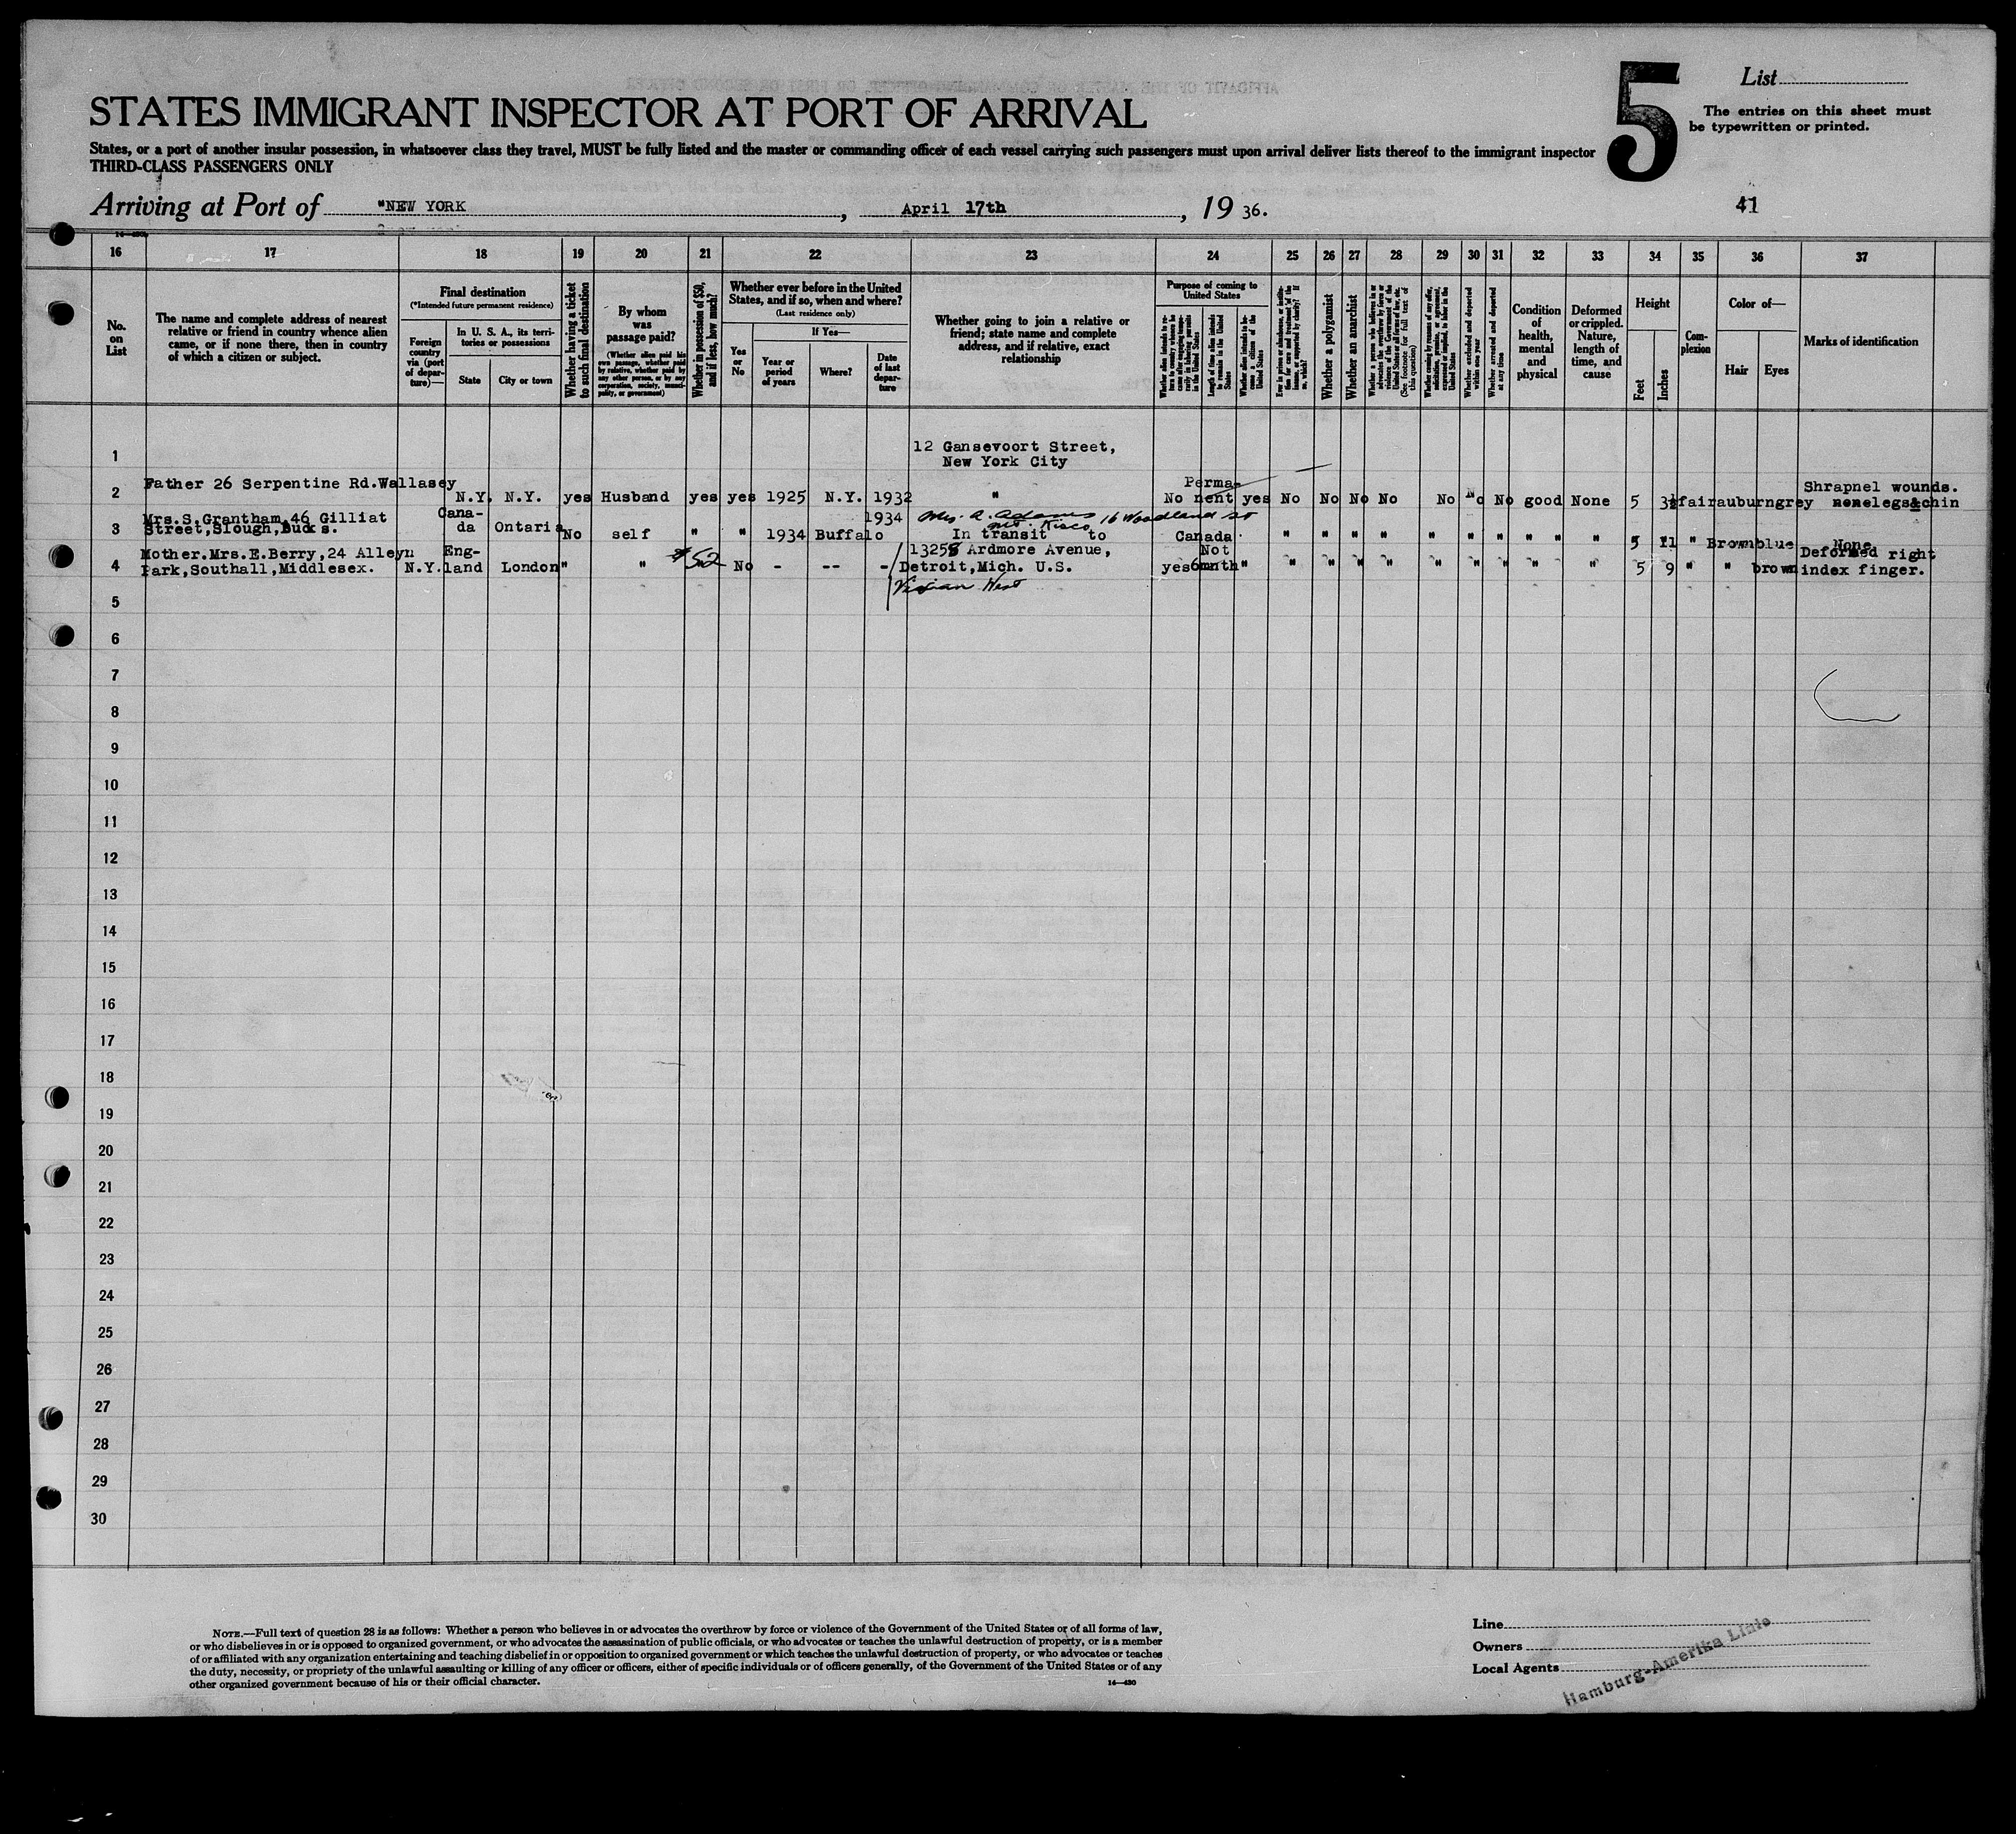 List
5
The entries on this sheet must
be typewritten or printed.
STATES IMMIGRANT INSPECTOR AT PORT OF ARRIVAL
States, or a port of another insular possession, in whatsoever class they travel, MUST be fully listed and the master or commanding officer of each vessel carrying such passengers must upon arrival deliver lists thereof to the immigrant inspector
THIRD-CLASS PASSENGERS ONLY
Arriving at Port of "NEW YORK , April 17th , 19 36.
41
16 17 18 19 20 21 22 23 24 25 26 27 28 29 30 31 32 33 34 35 36 37
No.
on
List
The name and complete address of nearest
relative or friend in country whence alien
came, or if none there, then in country
of which a citizen or subject.
Final destination
(*Intended future permanent residence)
Foreign
country
via (port
of depar-
ture)—
In U. S. A., its terri-
tories or possessions
State
City or town
Whether having a ticket
to such final destination
By whom
was
passage paid?
(Whether alien paid his
own passage, whether paid
by relative, whether paid by
any other person, or by any
corporation, society, munici-
pality, or government)
Whether in possession of $50,
and if less, how much?
Whether ever before in the United
States, and if so, when and where?
(Last residence only)
Yes
or
No
If Yes—
Year or
period
of years
Where?
Date
of last
depar-
ture
Whether going to join a relative or
friend; state name and complete
address, and if relative, exact
relationship
Purpose of coming to
United States
Whether alien intends to re-
turn to country whence he
came after engaging tempo-
rarily in laboring pursuits
in the United States
Length of time alien intends
to remain in the United
States
Whether alien intends to be-
come a citizen of the
United States
Ever in prison or almshouse, or institu-
tion for care and treatment of the
insane, or supported by charity? If
so, which?
Whether a polygamist
Whether an anarchist
Whether a person who believes in or
advocates the overthrow by force or
violence of the Government of the
United States or all forms of law, etc.
(See footnote for full text of
this question)
Whether coming by reason of any offer,
solicitation, promise, or agreement,
expressed or implied, to labor in the
United States
Whether excluded and deported
within one year
Whether arrested and deported
at any time
Condition
of
health,
mental
and
physical
Deformed
or crippled.
Nature,
length of
time, and
cause
Height
Feet
Inches
Com-
plexion
Color of—
Hair
Eyes
Marks of identification
1 12 Gansevoort Street,
New York City
Father 26 Serpentine Rd.Wallasey Perma- Shrapnel wounds.
2 N.Y. N.Y. yes Husband yes yes 1925 N.Y. 1932 " No nent yes No No No No No No No good None 5 3½ fair auburn grey legs&chin
Mrs.S.Grantham,46 Gilliat Cana- 1934 Mrs. A. Adams 16 Woodland St
Mt. Kisco
3 Street,Slough,Bucks. da Ontario No self " " 1934 Buffalo In transit to Canada " " " " " " " " " 5 11 " Brown blue None
Mother.Mrs.E.Berry,24 Alleyn Eng- 13258 Ardmore Avenue, Not Deformed right
4 Park,Southall,Middlesex. N.Y. land London " " $52 No - -- - Detroit,Mich. U.S. yes 6mnth " " " " " " " " " " 5 9 " " brown index finger.
Vivian West
5
6
7
8
9
10
11
12
13
14
15
16
17
18
19
20
21
22
23
24
25
26
27
28
29
30
NOTE.—Full text of question 28 is as follows: Whether a person who believes in or advocates the overthrow by force or violence of the Government of the United States or of all forms of law,
or who disbelieves in or is opposed to organized government, or who advocates the assassination of public officials, or who advocates or teaches the unlawful destruction of property, or is a member
of or affiliated with any organization entertaining and teaching disbelief in or opposition to organized government or which teaches the unlawful destruction of property, or who advocates or teaches
the duty, necessity, or propriety of the unlawful assaulting or killing of any officer or officers, either of specific individuals or of officers generally, of the Government of the United States or of any
other organized government because of his or their official character.
14—430
Line
Owners
Local Agents
Hamburg-Amerika Linie